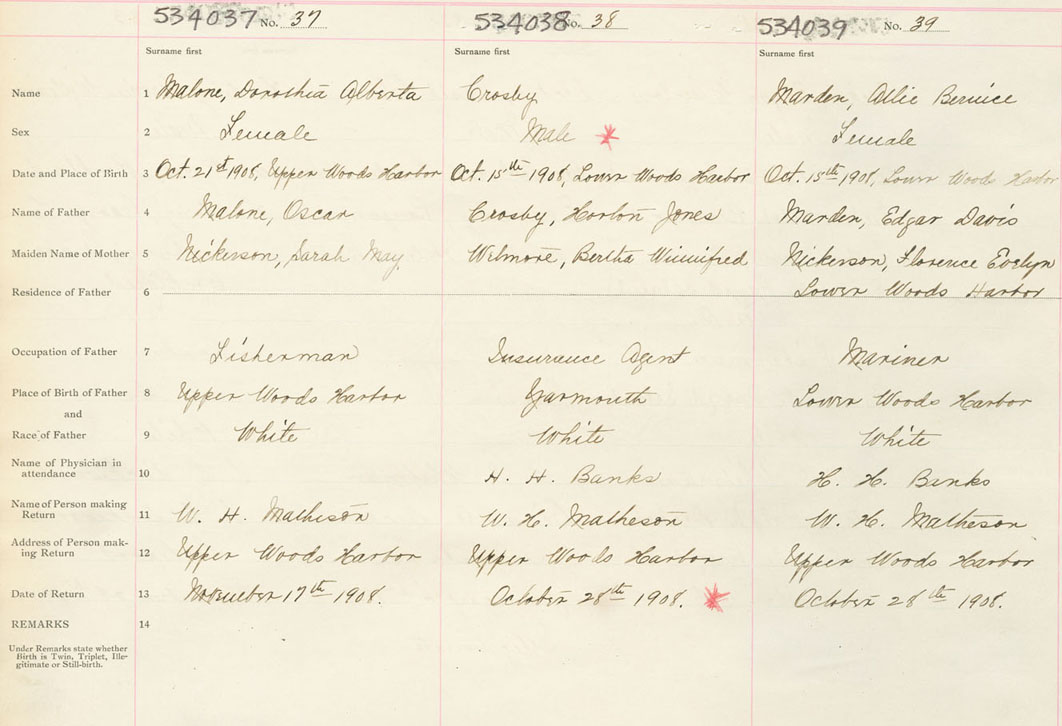 534037 No. 37 534038 No. 38 534039 No. 39
Surname first Surname first Surname first
Name 1 Malone, Dorothia Alberta Crosby Marden, Allie Bernice
Sex 2 Female Male Female
Date and Place of Birth 3 Oct. 21st 1908, Upper Woods Harbor Oct. 15th 1908, Lower Woods Harbor Oct. 15th 1908, Lower Wood Harbor
Name of Father 4 Malone, Oscar Crosby, Horton Jones Marden, Edgar Davis
Maiden Name of Mother 5 Nickerson, Sarah May Welmore, Bertha Winnifred Nickerson, Florence Evelyn
Residence of Father 6 Lower Woods Harbor
Occupation of Father 7 Fisherman Insurence Agent Mariner
Place of Birth of Father 8 Upper Woods Harbor Yarmouth Lower Woods Harbor
and
Race of Father 9 White White White
Name of Physician in
attendance 10 H. H. Banks H. H. Banks
Name of Person making
Return 11 W. H. Matheson W. H. Matheson W. H. Matheson
Address of Person mak-
ing Return 12 Upper Woods Harbor Upper Woods Harbor Upper Woods Harbor
Date of Return 13 November 17th 1908. October 28th 1908. October 28th 1908.
REMARKS 14
Under Remarks state whether
Birth is Twin, Triplet, Ille-
gitimate or Still-birth.